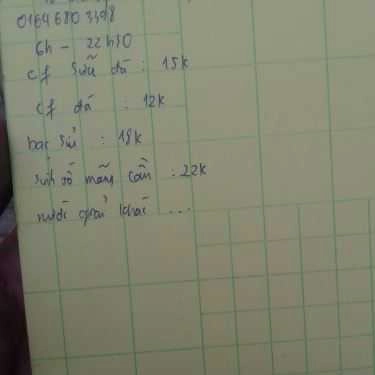 01646803398
6h - 22h30
cf sữa đá : 15k
cf đá : 12k
bạc sỉu : 18k
sinh tố mãng cầu : 22k
nước giải khát ...